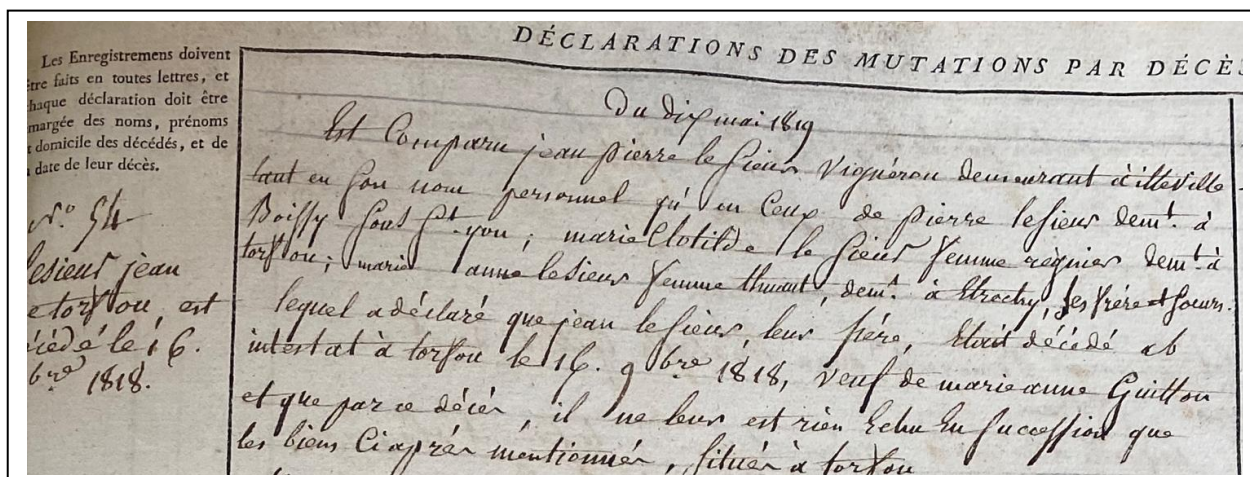 DÉCLARATIONS DES MUTATIONS PAR DÉCÈS
Les Enregistremens doivent
être faits en toutes lettres, et
chaque déclaration doit être
margée des noms, prénoms
domicile des décédés, et de
date de leur décès.
N.º 54
lesieur jean
de torfou, est
décédé le 16.
bre 1818.
Du dix mai 1819
Est Comparu jean pierre le sieur Vignéron demeurant à itteville
tant en son nom personnel qu'en Ceux de pierre lesieur demt. à
Boissy sous St. yon; marie Clotilde le sieur femme régnier demt. à
torfou; marie anne lesieur femme thuant, demt. à Etrechy, ses frére et soeurs.
lequel a déclaré que jean lesieur, leur père, était décédé ab
intestat à torfou le 16. 9bre 1818, veuf de marie anne Guitton
et que par ce décés, il ne leur est rien Echu En succession que
les biens Ci aprés mentionnés, situés à torfou